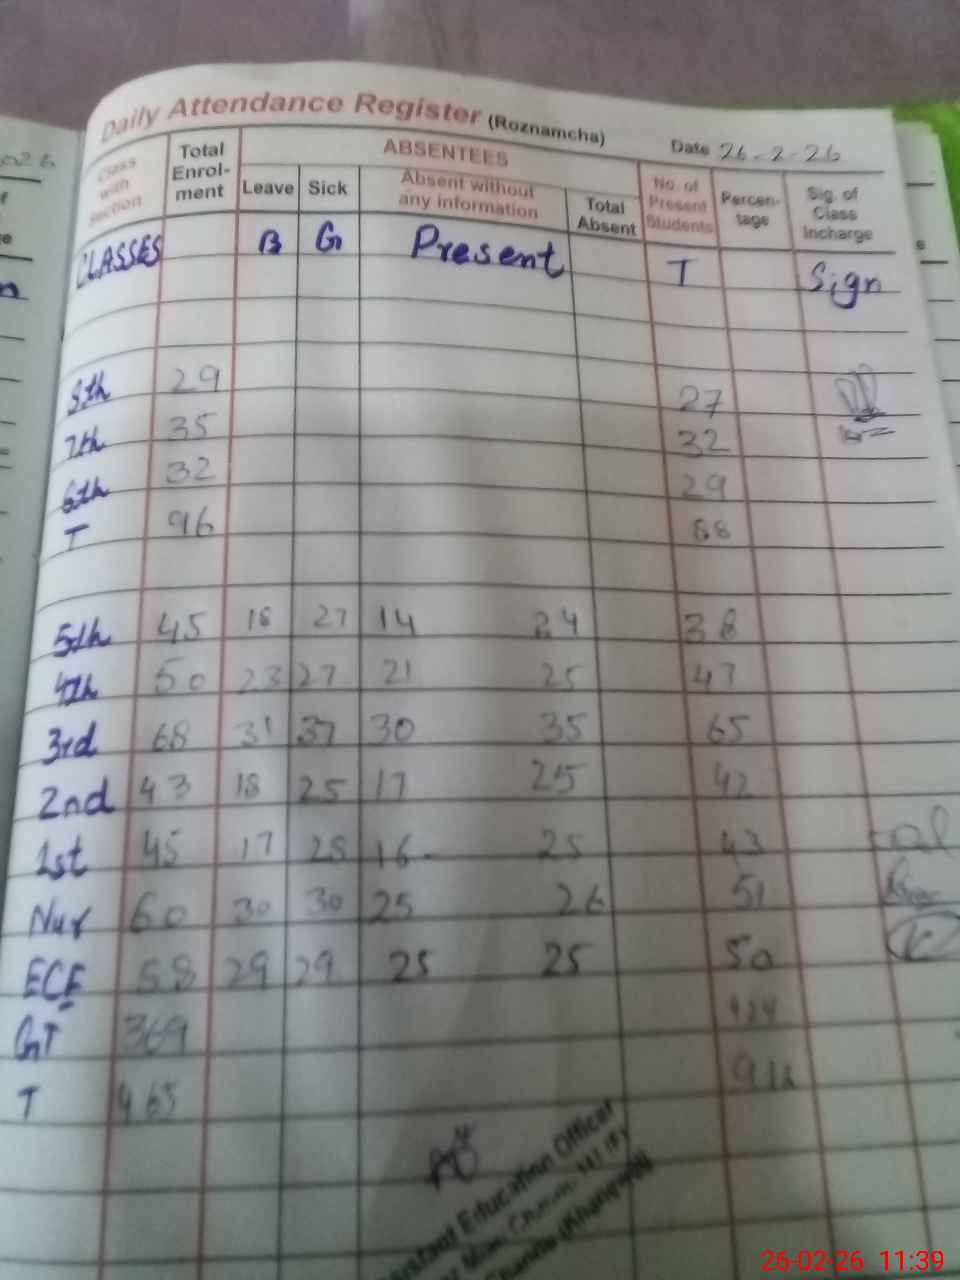 Daily Attendance Register (Roznamcha)
Date 26-2-26
Class with Section
Total Enrol-ment
ABSENTEES
Leave Sick Absent without any information Total Absent
No. of Present Students
Percen-tage
Sig. of Class Incharge
CLASSES B G Present T Sign
8th 29 27
7th 35 32
6th 32 29
T 96 88
5th 45 18 27 14 24 38
4th 50 23 27 21 25 47
3rd 68 31 37 30 35 65
2nd 43 18 25 17 25 42
1st 45 17 28 16 25 43
Nur 60 30 30 25 26 51
ECE 58 29 29 25 25 50
GT 369
T 465
Education Officer
26-02-26 11:39